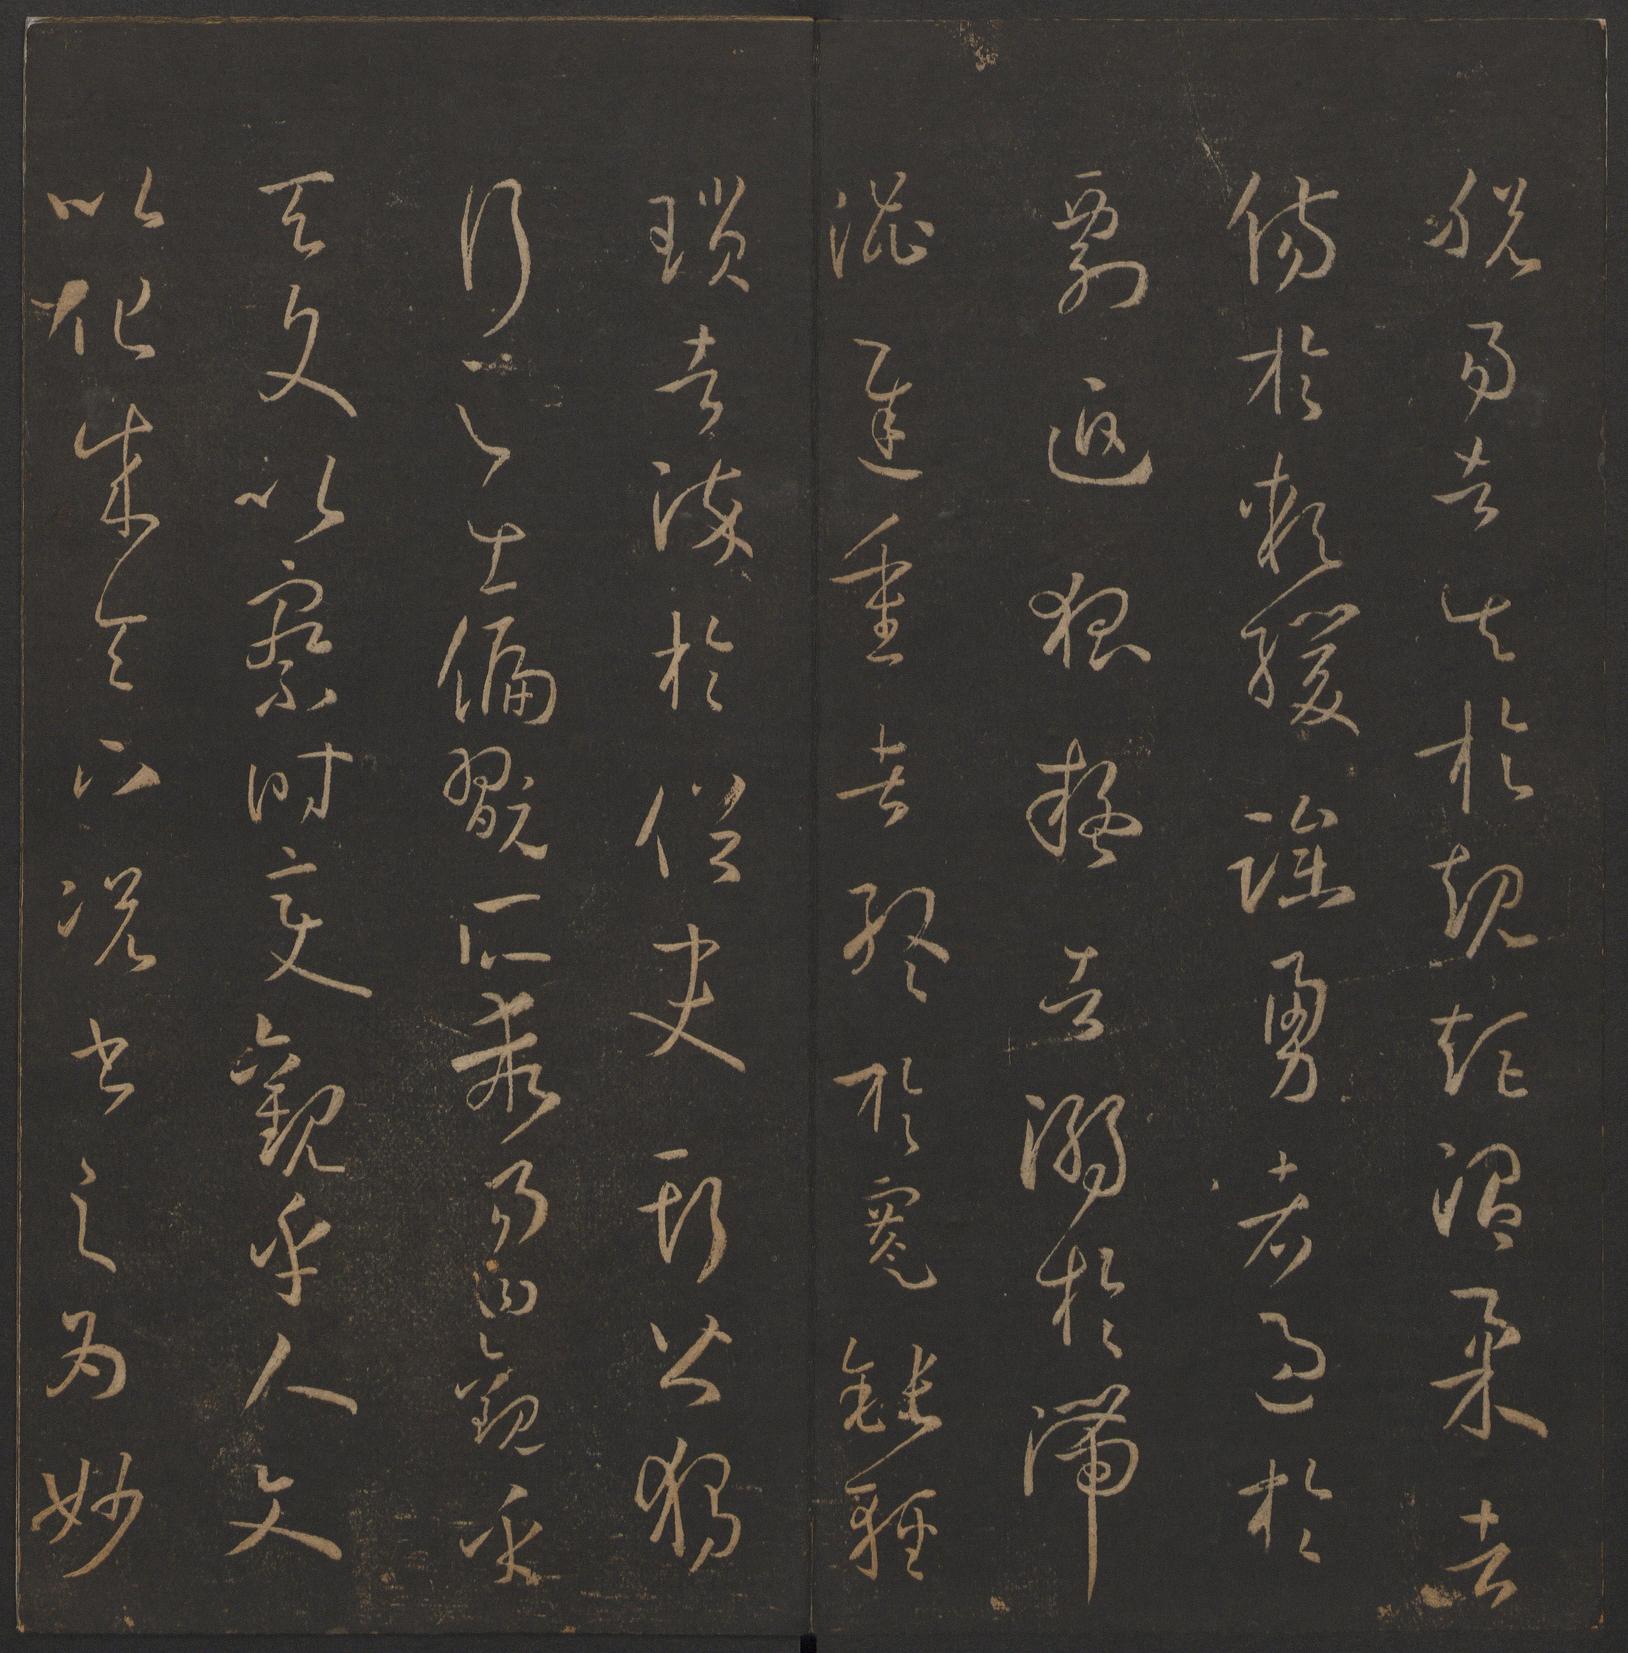 脱易者失於規矩温柔者
傷於軟緩躁勇者過於
剽迫狐疑者溺於滞
澁遲重者終於蹇鈍輕
瑣者染於俗吏斯皆獨
行之士偏翫所乖易曰觀乎
天文以察時變觀乎人文
以化成天下况書之為妙